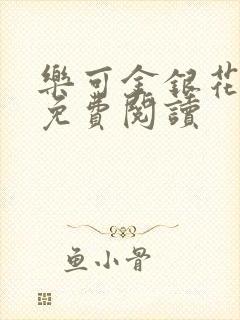 樂可金銀花
免費閱讀
鱼小骨